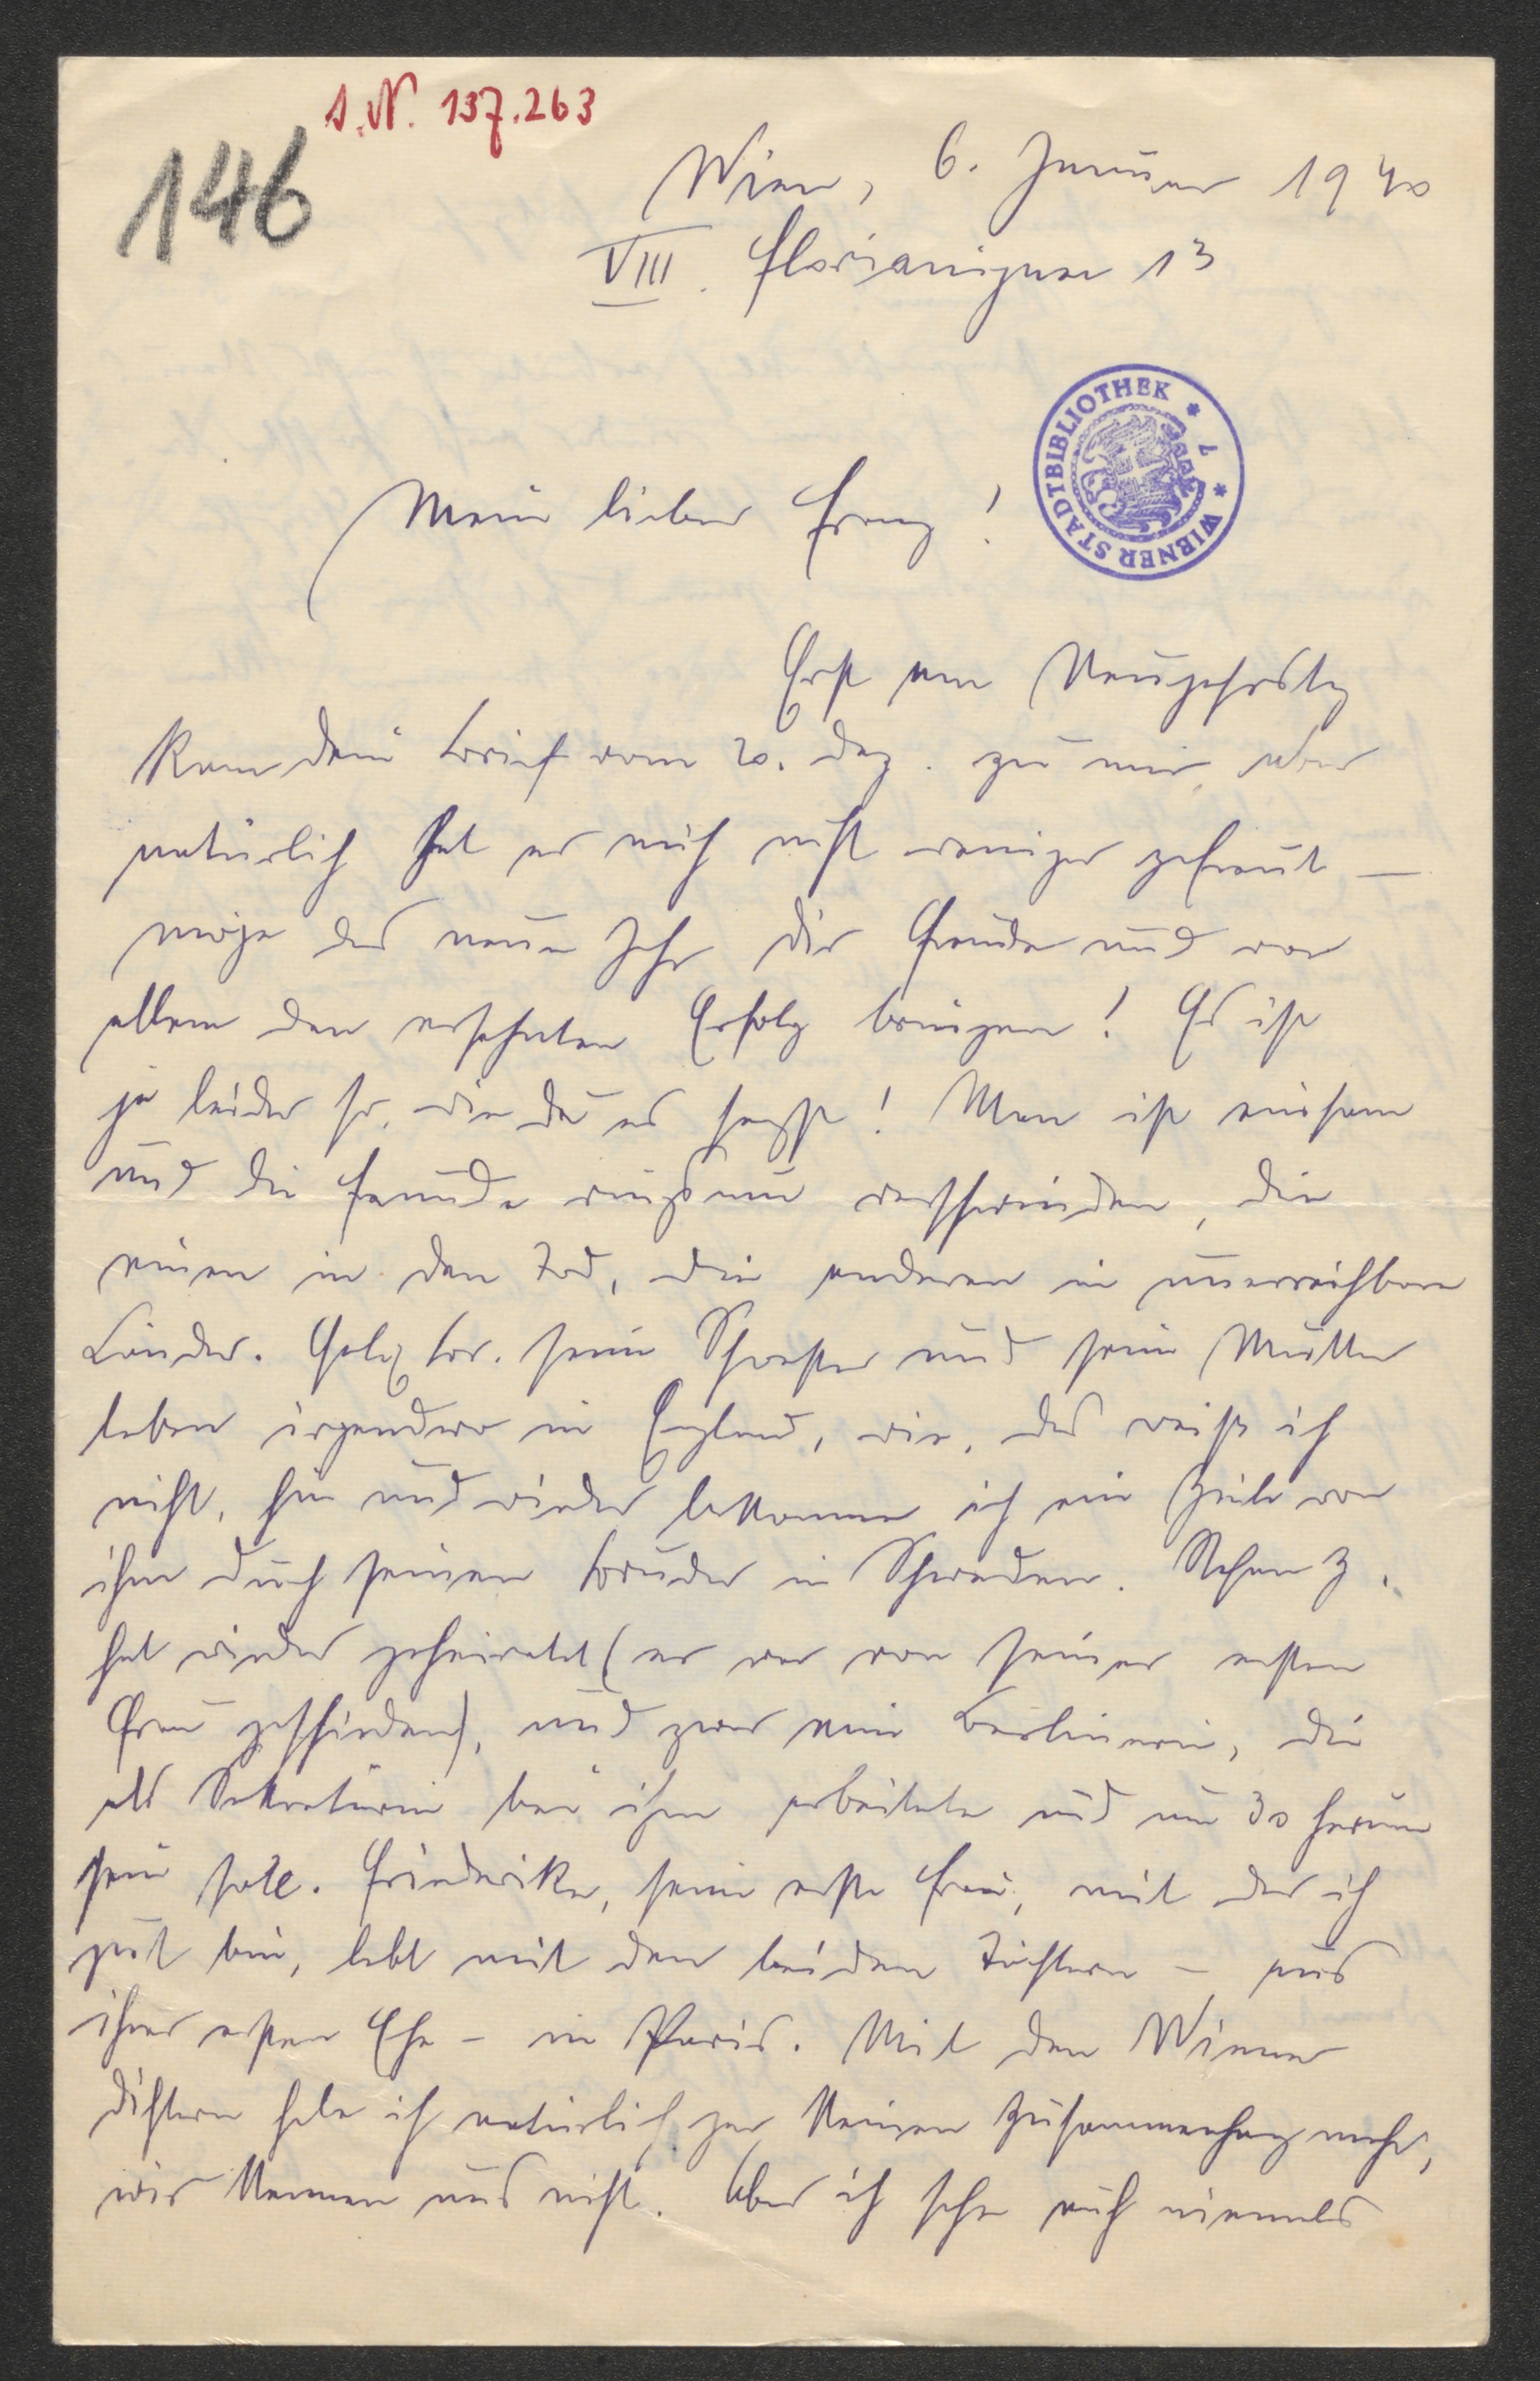 I.N. 137.263
146
Wien, 6. Januar 1940
VIII. Florianigasse 13
WIENER STADTBIBLIOTHEK * 7 *
Mein lieber Franz!
Erst am Neujahrstag
kam dein Brief vom 20. Dez. zu mir, aber
natürlich hat er mich nicht weniger gefreut —
möge das neue Jahr dir Freude und vor
allem den ersehnten Erfolg bringen! Es ist
ja leider so, wie du es sagst! Man ist einsam
und die Freunde ringsum verschwinden, die
einen in den Tod, die anderen in unerreichbare
Länder. Felix Br. seine Schwester und seine Mutter
leben irgendwo in England, wie, das weiß ich
nicht, hin und wieder bekomme ich eine Zeile von
ihm durch seinen Bruder in Schweden. Stefan Z.
hat wieder geheiratet (er war von seiner ersten
Frau geschieden), und zwar eine Berlinerin, die
als Sekretärin bei ihm arbeitete und um 30 herum
sein soll. Friederike, seine erste Frau, mit der ich
gut bin, lebt mit den beiden Töchtern – aus
ihrer ersten Ehe – in Paris. Mit den Wiener
Dichtern habe ich natürlich gar keinen Zusammenhang mehr,
wir kennen uns nicht. Aber ich sehe auch niemals